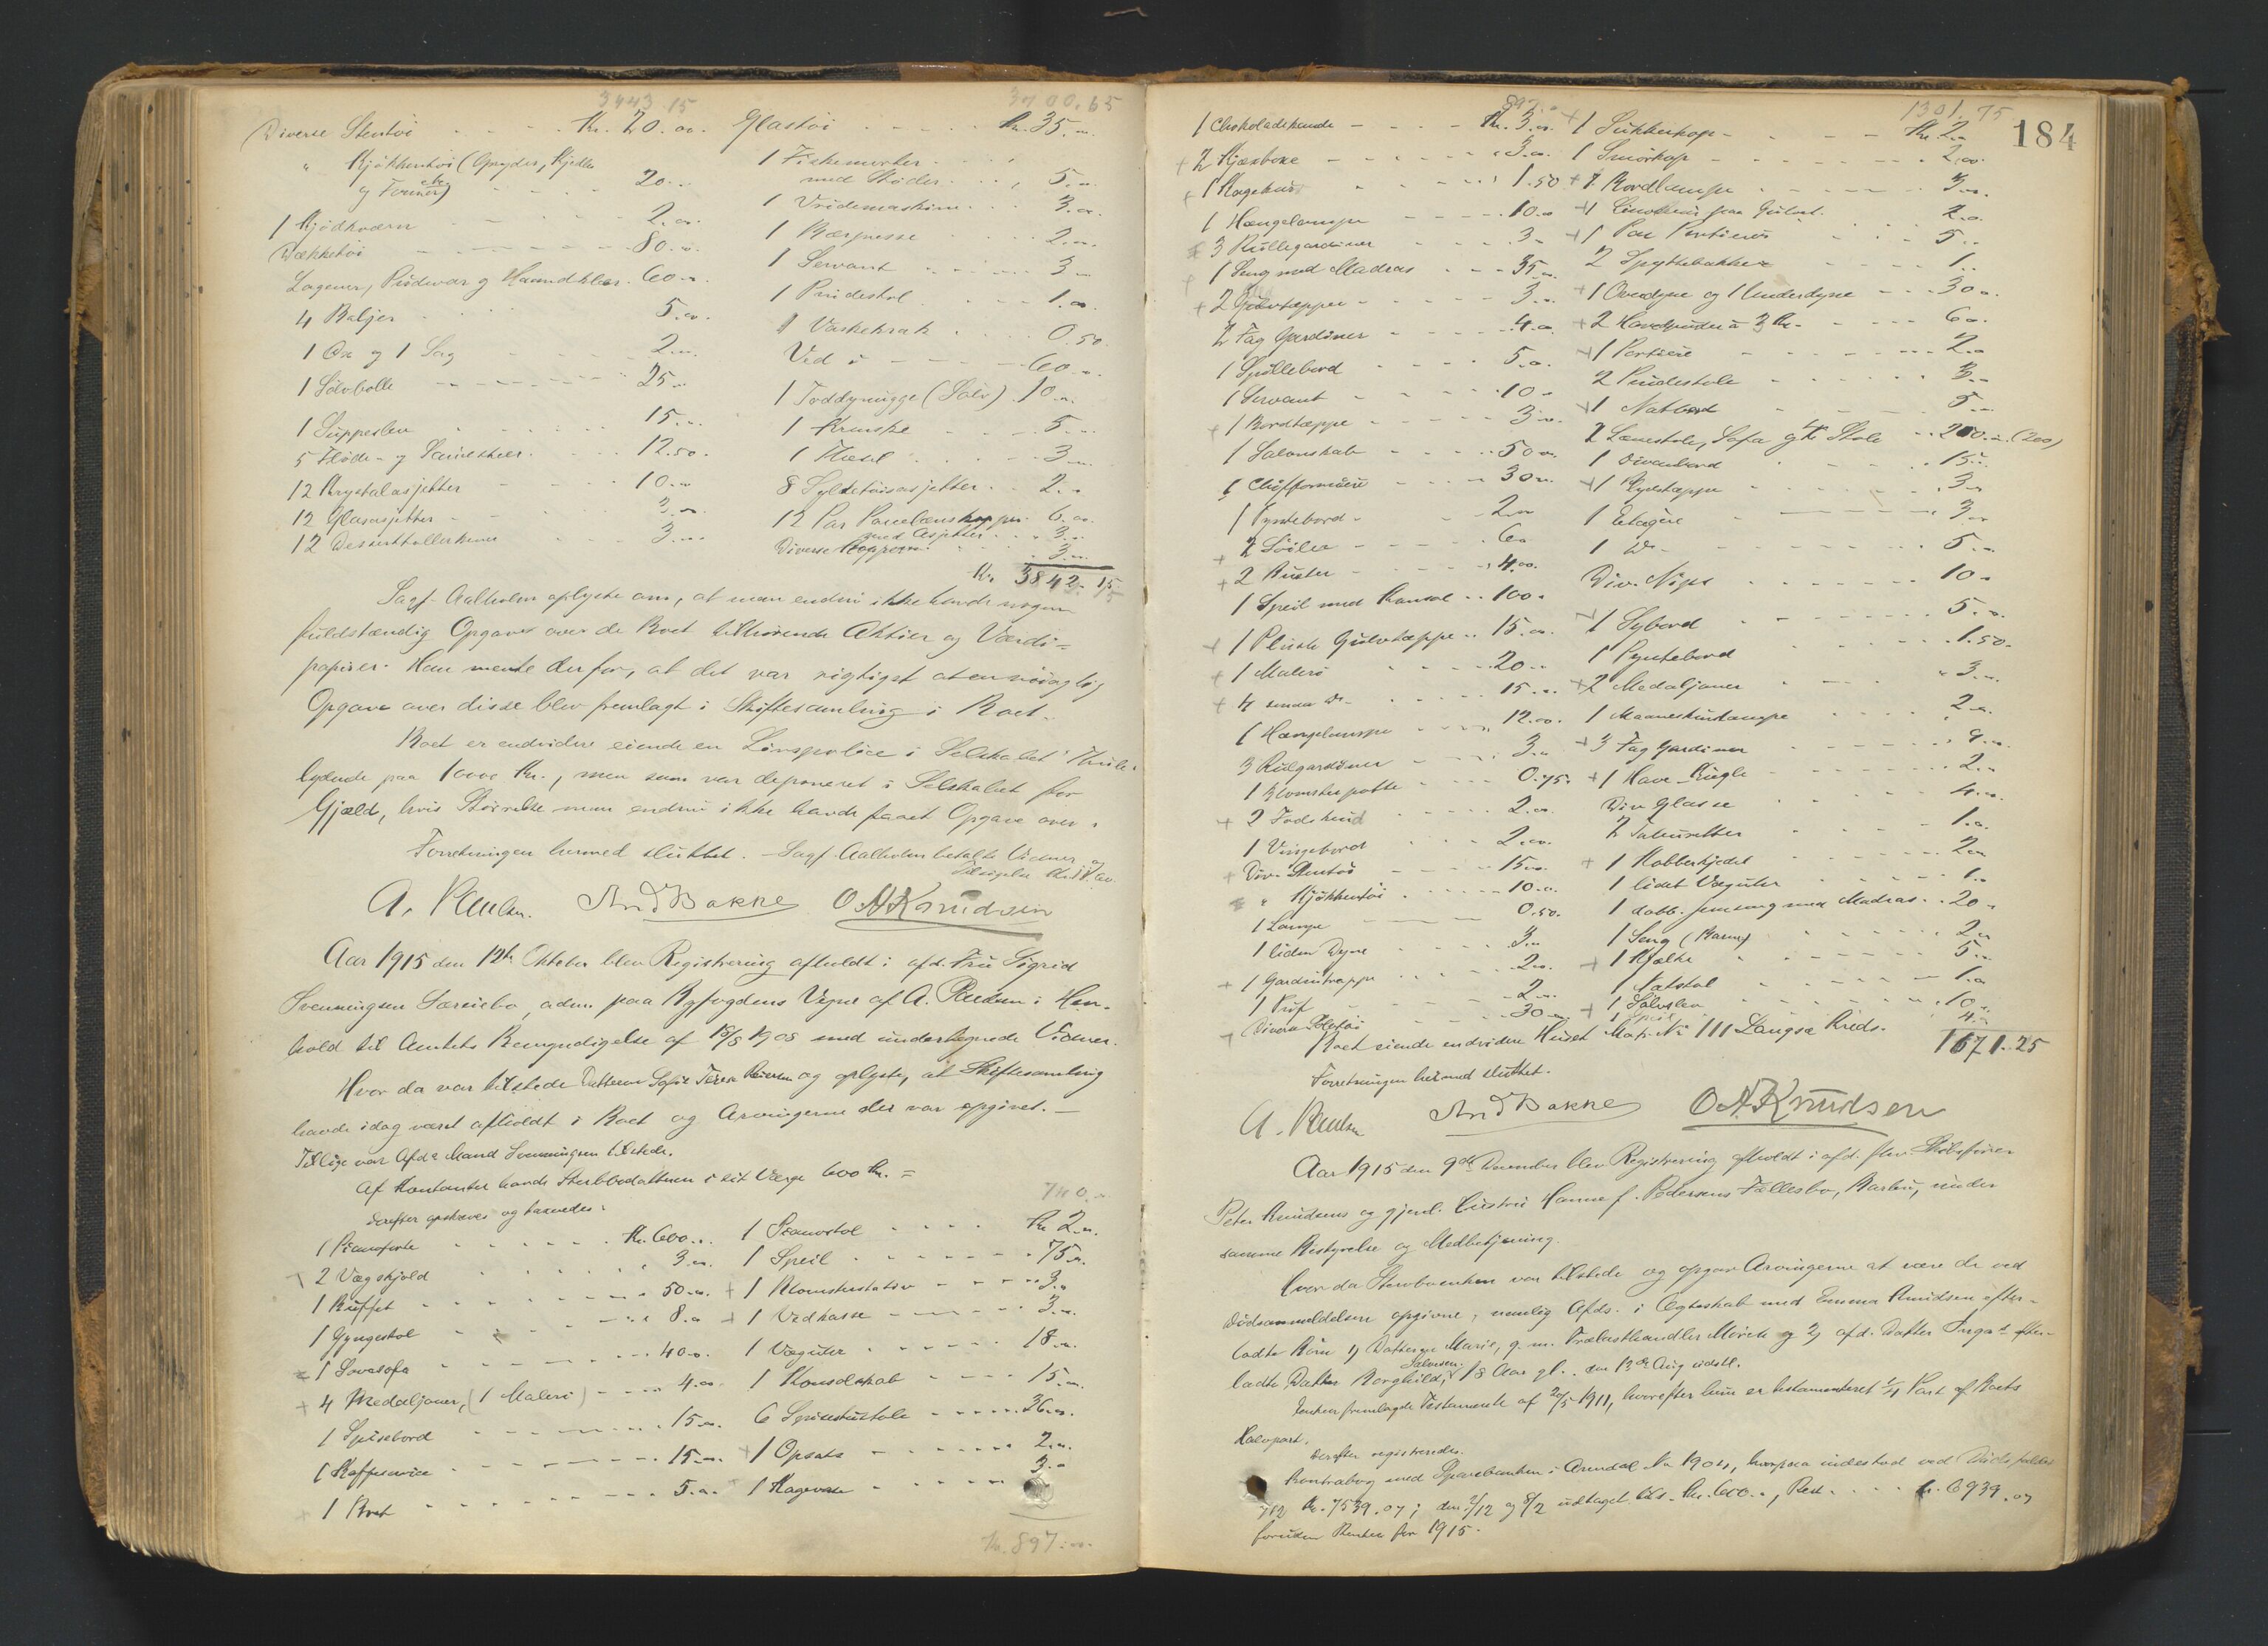 3443.15
Diverse Stentøi Kr. 20.00.
" Kjøkkentøi (Gryder, Kjedler
og Former) 20..
1 Kjødkværn 2.00.
Dækketøi 80...
Lagener, Pudevar og Haandklær. 60...
4 Baljer 5.00.
1 Øx og 1 Sag 2...
1 Sølvbolle 25..
1 Suppeslev 15...
5 Fløde- og Saueskeer 12.50.
12 Krystalasjetter 10...
12 Glasasjetter 3...
12 Desserttallerkener 3...
3700.65
Glastøi Kr. 35...
1 Fiskemorter
med Støder 5...
1 Vridemaskine 3.00.
1 Bærpresse 2...
1 Servant 3...
1 Pindestol 1.00
1 Vaskekrak 0.50.
Ved i 60...
1 Toddymugge (Sølv) 10...
1 Krukke 5...
1 Hæsel 3...
8 Syltetøisasjetter 2..
12 Par Porcelænskopper 6.00.
med Asjetter 3...
Diverse Kopper 3...
Kr. 3842.15
Sagf. Aalholm oplyste om, at man endnu ikke havde nogen
fuldstændig Opgave over de Boet tilhørende Aktier og Værdi=
papirer. Han mente derfor, at det var rigtigst at en nøiagtig
Opgave over disse blev fremlagt i Skiftesamling i Boet.
Boet er endvidere eiende en Livspolice i Selskabet "Thule"
lydende paa 10000 Kr., men som var deponeret i Selskabet for
Gjæld, hvis Størrelse man endnu ikke havde faaet Opgave over.
Forretningen hermed sluttet. – Sagf. Aalholm betalte Vidner og
A. Paulsen. And Bakke O A Knudsen
Aar 1915 den 12te Oktober blev Registrering afholdt i afd. Fru Sigrid
Svenningsen Særviebo, adm. paa Byfogdens Vegne af A. Paulsen i Hen-
hold til Amtets Bemyndigelse af 18/8 1908 med undertegnede Vidner.
Hvor da var tilstede Datteren Sofie og oplyste, at Skiftesamling
havde idag været afholdt i Boet og Arvingerne der var opgivet. –
Tillige var Afdes Mand Svenningsen tilstede.
Af Kontanter havde Sterbbodatteren i sit Værge 600 Kr. =
Derefter opskreves og taxeredes:
1 Pianoforte Kr. 600...
2 Vægskjold 3.00.
1 Buffet 50.00.
1 Gyngestol 8.00
1 Sovesofa 40.00.
4 Medaljoner, (1 Maleri) 4.00
1 Spisebord 15.00.
1 Kaffeservice 15.00.
1 Bret 5.00.
740..
1 Pianostol Kr 2.00.
1 Speil 75.00.
1 Blomsterstativ 3..
1 Vedkasse 3...
1 Væguhr 18.00.
1 Konsolskab 15.00.
6 Spisestustole 36.00.
1 Opsats 2.00.
1 Kagevase 3..
Kr. 897.00.
184
897..
1 Chokoladekande Kr. 3.00.
2 Kjæxboxe 3.00.
1 Kagekurv 1.50
1 Hængelampe 10.00
3 Rullegardiner 3..
1 Seng med Madras 35..
2 Gulvtæpper 3..
2 Fag Gardiner 4.00.
1 Spillebord 5.00.
1 Servant 10..
1 Bordtæppe 3.00.
1 Salonskab 50.00.
1 Chiffonniere 30...
1 Pyntebord 2.00
2 Søiler 6..
2 Buster 4.00.
1 Speil med Konsol 100..
1 Plusch Gulvtæppe 15.00.
1 Maleri 20..
4 smaa Do. 15...
1 Hængelampe 12.00.
3 Rulgardiner 3..
1 Blomsterpotte 0.75.
2 Fodskind 2.00.
1 Vingebord 2.00.
Div. Stentøi 15.00.
" Kjøkkentøi 10.00.
1 Lampe 0.50.
1 liden Dyne 3..
1 Gardintrappe 2.00.
1 Puf 2.00.
Diverse Sletøi 30...
1301.75
1 Sukkerkop Kr. 2..
1 Smørkop 2.00.
1 Bordlampe 3...
1 Linoleum paa Gulvet. 2.00.
1 Par Portierer 5..
2 Spyttebakker 1..
1 Overdyne og 1 Underdyne 30..
2 Hovedpuder à 3 Kr. 6..
1 Portiere 2..
2 Pindestole 3..
1 Natbord 5...
2 Lænestole, Sofa og 4 Stole 200... (200)
1 Divanbord 15..
1 Ryetæppe 3..
1 Etagere 3..
1 Do. 5..
Div. Nips 10..
1 Sybord 5...
1 Pyntebord 1.50.
2 Medaljoner 3...
1 Maaneskinslampe 2..
3 Fag Gardiner 9...
1 Have-Kugle 2..
Div Glasse 4.00.
2 Taburetter 1.00.
1 Kobberkjedel 2..
1 lidet Væguhr 1..
1 dobb. Jernseng med Madras 20..
1 Seng (Barne) 2..
1 Kjælke 5..
1 Natstol 1..
1 Sølvslev 10..
1 Speil 4..
Boet eiende endvidere Huset Matr. No 111 Langsæ Kreds. 1671.25
Forretningen hermed sluttet.
A. Paulsen And Bakke O A Knudsen
Aar 1915 den 9de Desember blev Registrering afholdt i afd. fhv. Skibsfører
Peter Knudsens og gjenl. Hustru Hanna f. Pedersens Fællesbo, Barbu, under
samme Bestyrelse og Medbetjening.
Hvor da Sterboenken var tilstede og opgav Arvingerne at være de ved
Dødsanmeldelsen opgivne, nemlig Afds. i Ægteskab med Emma Knudsen efter-
ladte Børn 1) Datteren Marie, g. m. Trælasthandler Mørch og 2) afd. Datter Ingas efter-
ladte Datter Borghild Salvesen, 18 Aar gl. den 13de Aug sidstl.
Enken fremlagde Testamente af 20/5 1911, hvorefter hun er testamenteret 1/4 Part af Boets
Halvpart.
Derefter registreredes.
Kontrabog med Sparebanken i Arendal No 1904, hvorpaa indestod ved Dødsfaldet
7/12 Kr. 7539.07; den 2/12 og 8/12 udtaget tils. Kr. 600.., Rest Kr. 6939.07
foruden Renter for 1915.